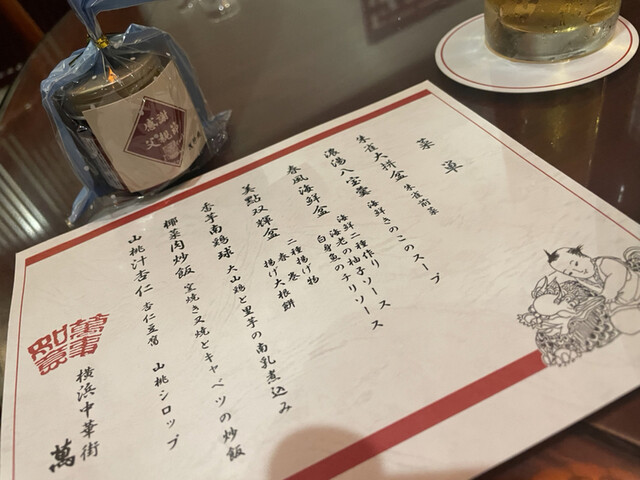 菜單
朱雀大拼盆 朱雀前菜
濃湯八宝羹 海鮮きのこのスープ
春風海鮮盆 海鮮二種作り
海老の柚子ソース
白身魚のチリソース
美點双輝盆 二種揚げ物
春巻
揚げ大根餅
香芋南鶏球 大山鶏と里芋の南乳煮込み
椰菜肉炒飯 窯焼き叉焼とキャベツの炒飯
山桃汁杏仁 杏仁豆腐 山桃シロップ
萬事如意
横浜中華街
萬
感謝
父親節